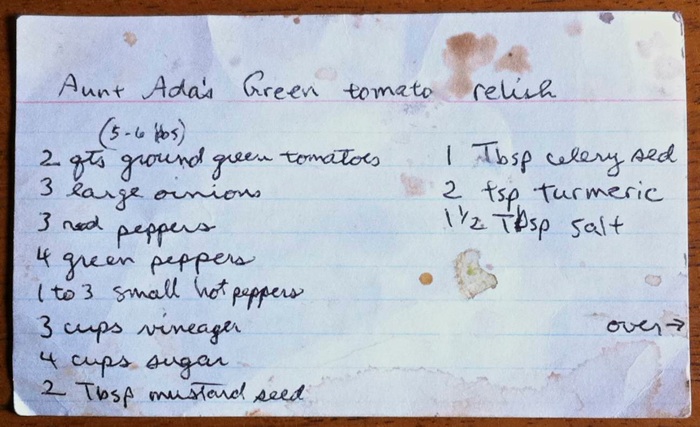 Aunt Ada's Green tomato relish
(5-6 lbs)
2 qts ground green tomatoes
3 large oinions
3 red peppers
4 green peppers
1 to 3 small hot peppers
3 cups vineager
4 cups sugar
2 Tbsp mustard seed
1 Tbsp celery sed
2 tsp turmeric
1 1/2 Tbsp salt
over→